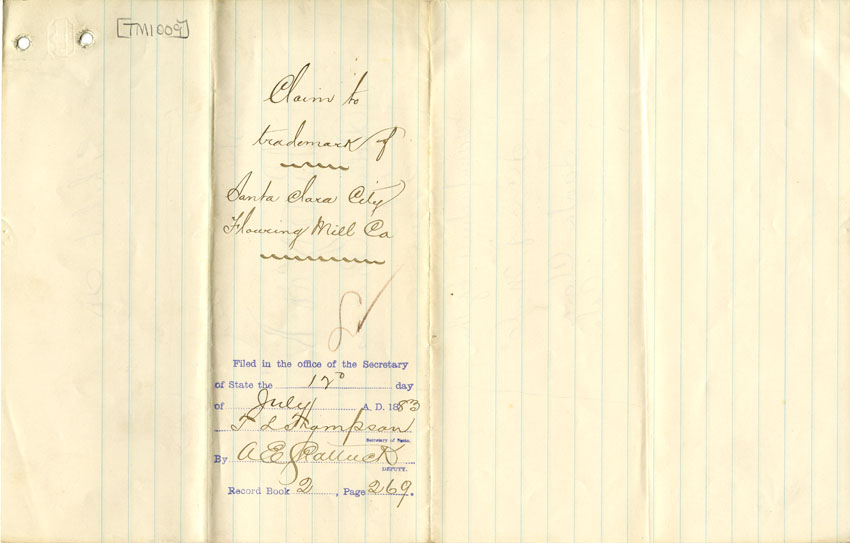 [TM1009]
Claim to
trademark of
Santa Clara City
Flouring Mill Co
Filed in the office of the Secretary
of State the 12º day
of July A. D. 1883
T L Thompson
Secretary of State.
By A E
DEPUTY.
Record Book 2, Page 269.